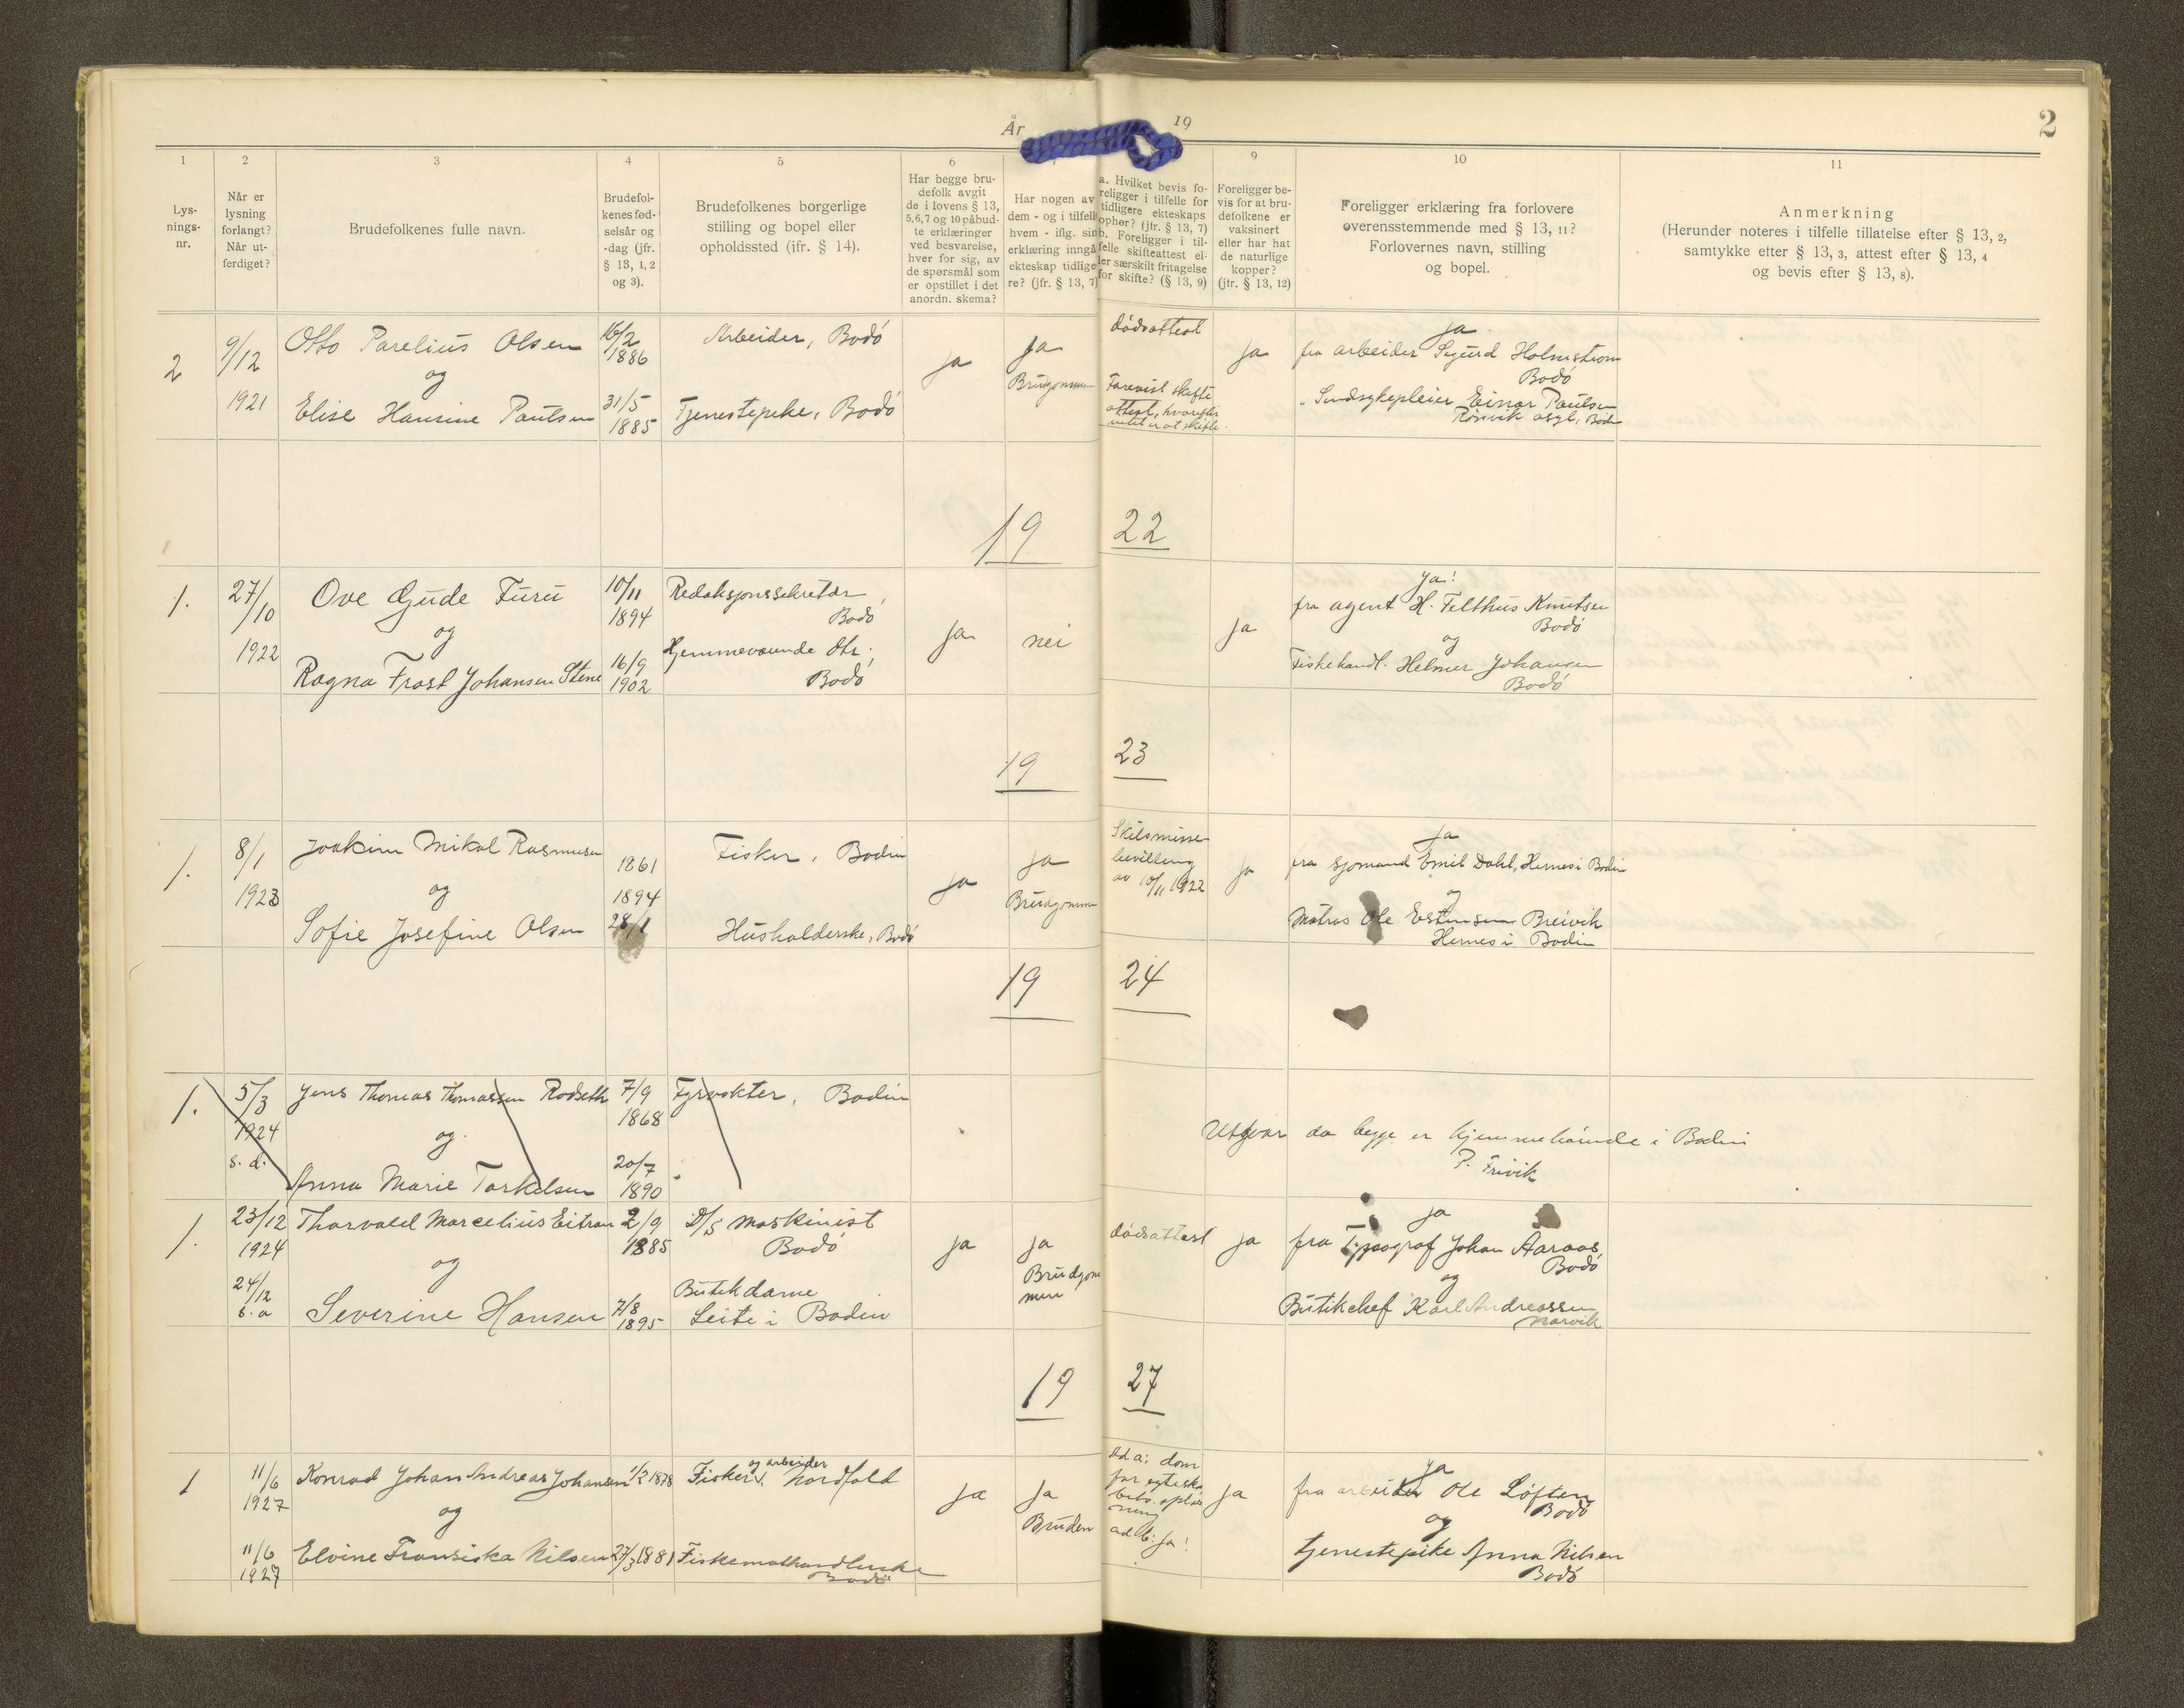 År 19
2
1
Lys-
nings-
nr.
2
Når er
lysning
forlangt?
Når ut-
ferdiget?
3
Brudefolkenes fulle navn.
4
Brudefol-
kenes fød-
selsår og
-dag (jfr.
§ 13, 1, 2
og 3).
5
Brudefolkenes borgerlige
stilling og bopel eller
opholdssted (ifr. § 14).
6
Har begge bru-
defolk avgit
de i lovens § 13,
5,6,7 og 10 påbud-
te erklæringer
ved besvarelse,
hver for sig, av
de spørsmål som
er opstillet i det
anordn. skema?
Har nogen av
dem - og i tilfelle
hvem - iflg. sin
erklæring inngå
ekteskap tidlige
re? (jfr. § 13, 7)
a. Hvilket bevis fo-
religger i tilfelle for
tidligere ekteskaps
opher? (jfr. § 13, 7)
b. Foreligger i til-
felle skifteattest el-
ler særskilt fritagelse
for skifte? (§ 13, 9)
9
Foreligger be-
vis for at bru-
defolkene er
vaksinert
eller har hat
de naturlige
kopper?
(jfr. § 13, 12)
10
Foreligger erklæring fra forlovere
overensstemmende med § 13, 11?
Forlovernes navn, stilling
og bopel.
11
Anmerkning
(Herunder noteres i tilfelle tillatelse efter § 13, 2,
samtykke etter § 13, 3, attest efter § 13, 4
og bevis efter § 13, 8).
2
9/12
1921
Otto Parelius Olsen
og
Elise Hansine Paulsen
16/2
1886
31/5
1885
Arbeider, Bodö
Tjenestepike, Bodö
ja
ja
Brudgommen
dödsattest
Forevist skifte
attest, hvorefter
intet er at skifte.
ja
ja
fra arbeider Sigurd Holmstrøm
Bodö
" Sindsykepleier Einar Paulsen
Rönvik asyl, Bodö
19 22
1.
27/10
1922
Ove Gude Furu
og
Ragna Frost Johansen Stene
10/11
1894
16/9
1902
Redaksjonssekretær,
Bodö
Hjemmeværende dtr.,
Bodö
ja
nei
ja
ja!
fra agent H. Felthus Knutsen
Bodö
og
Fiskehandl. Helmer Johansen
Bodö
19 23
1.
8/1
1923
Joakim Mikal Rasmussen
og
Sofie Josefine Olsen
1861
1894
28/1
Fisker, Bodin
Husholderske, Bodö
ja
ja
Brudgommen
Skilsmisse
bevilling
av 15/11 1922
ja
ja
fra sjömand Emil Dahl, Hernes i Bodin
og
Matros Ole Estensen Breivik
Hernes i Bodin
19 24
1.
5/3
1924
s. d.
Jens Thomas Thomassen Rødseth
og
Anna Marie Torkelsen
7/9
1868
20/7
1890
Fyrvokter, Bodin
Utgår da begge er hjemmehörende i Bodin
P. Frivik
1.
23/12
1924
24/12
s. a
Thorvald Marcelius Eitran
og
Severine Hansen
2/9
1885
7/8
1895
D/S maskinist
Bodö
Butikdame
Leite i Bodin
ja
ja
Brudgom
men
dödsattest
ja
ja
fra Typograf Johan Aaraas,
Bodö
og
Butikchef Karl Andreassen
Narvik
19 27
1
11/6
1927
11/6
1927
Konrad Johan Andreas Johansen
og
Elvine Fransiska Nilsen
1/2 1878
27/3 1881
og arbeider
Fisker, Nordfold
Fiskemathandlerske
Bodö
ja
ja
Bruden
Ad a: dom
for egteska
bets oplös
ning
ad b: ja!
ja
ja
fra arbeider Ole Löften
Bodö
og
tjenestepike Anna Nilsen
Bodö